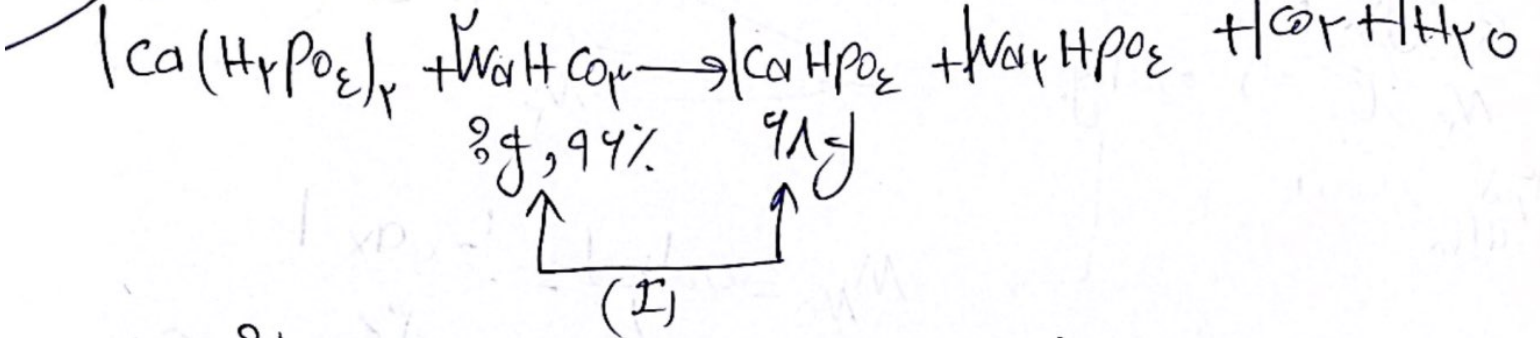 ۱Ca(H۲PO۴)۲ + ۲NaHCO۳ → ۱CaHPO۴ + ۱Na۲HPO۴ + ۱CO۲ + ۱H۲O
?g, ۹۶% ۹۸g
(I)